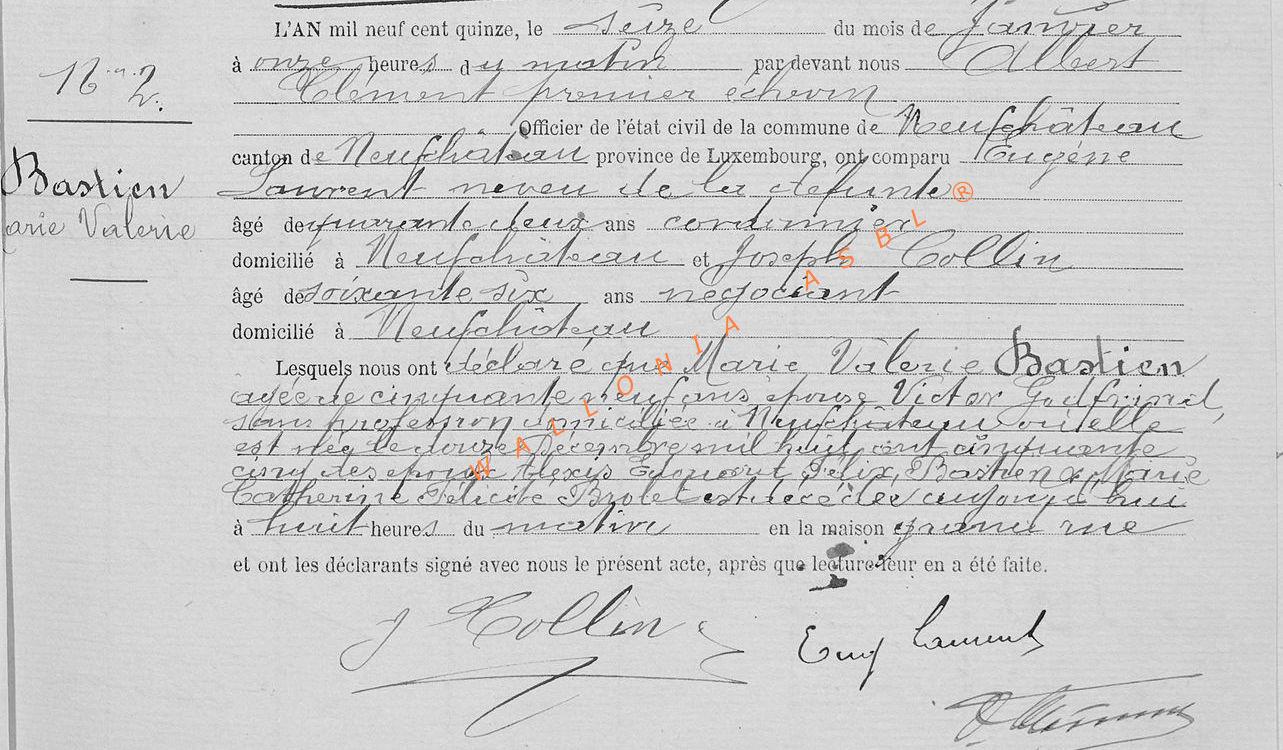 L'AN mil neuf cent quinze, le seize du mois de Janvier
à onze heures du matin par devant nous Albert
Clément premier échevin
Officier de l'état civil de la commune de Neufchâteau
canton de Neufchâteau province de Luxembourg, ont comparu Eugène
Laurent neveu de la défunte
âgé de quarante deux ans cordonnier
domicilié à Neufchâteau et Joseph Collin
âgé de soixante six ans négociant
domicilié à Neufchâteau
Lesquels nous ont déclaré que Marie Valérie Bastien
agée de cinquante neuf ans épouse Victor Godfrind,
sans profession domiciliée à Neufchâteau où elle
est née le douze Décembre mil huit cent cinquante
cinq des époux Alexis Félix Bastien & Marie
Catherine Félicité est décédée aujourd'hui
à huit heures du matin en la maison grand rue
et ont les déclarants signé avec nous le présent acte, après que lecture leur en a été faite.
J Collin
Eug Laurent
16 2.
Bastien
Marie Valerie
WALLONIA ASBL ®